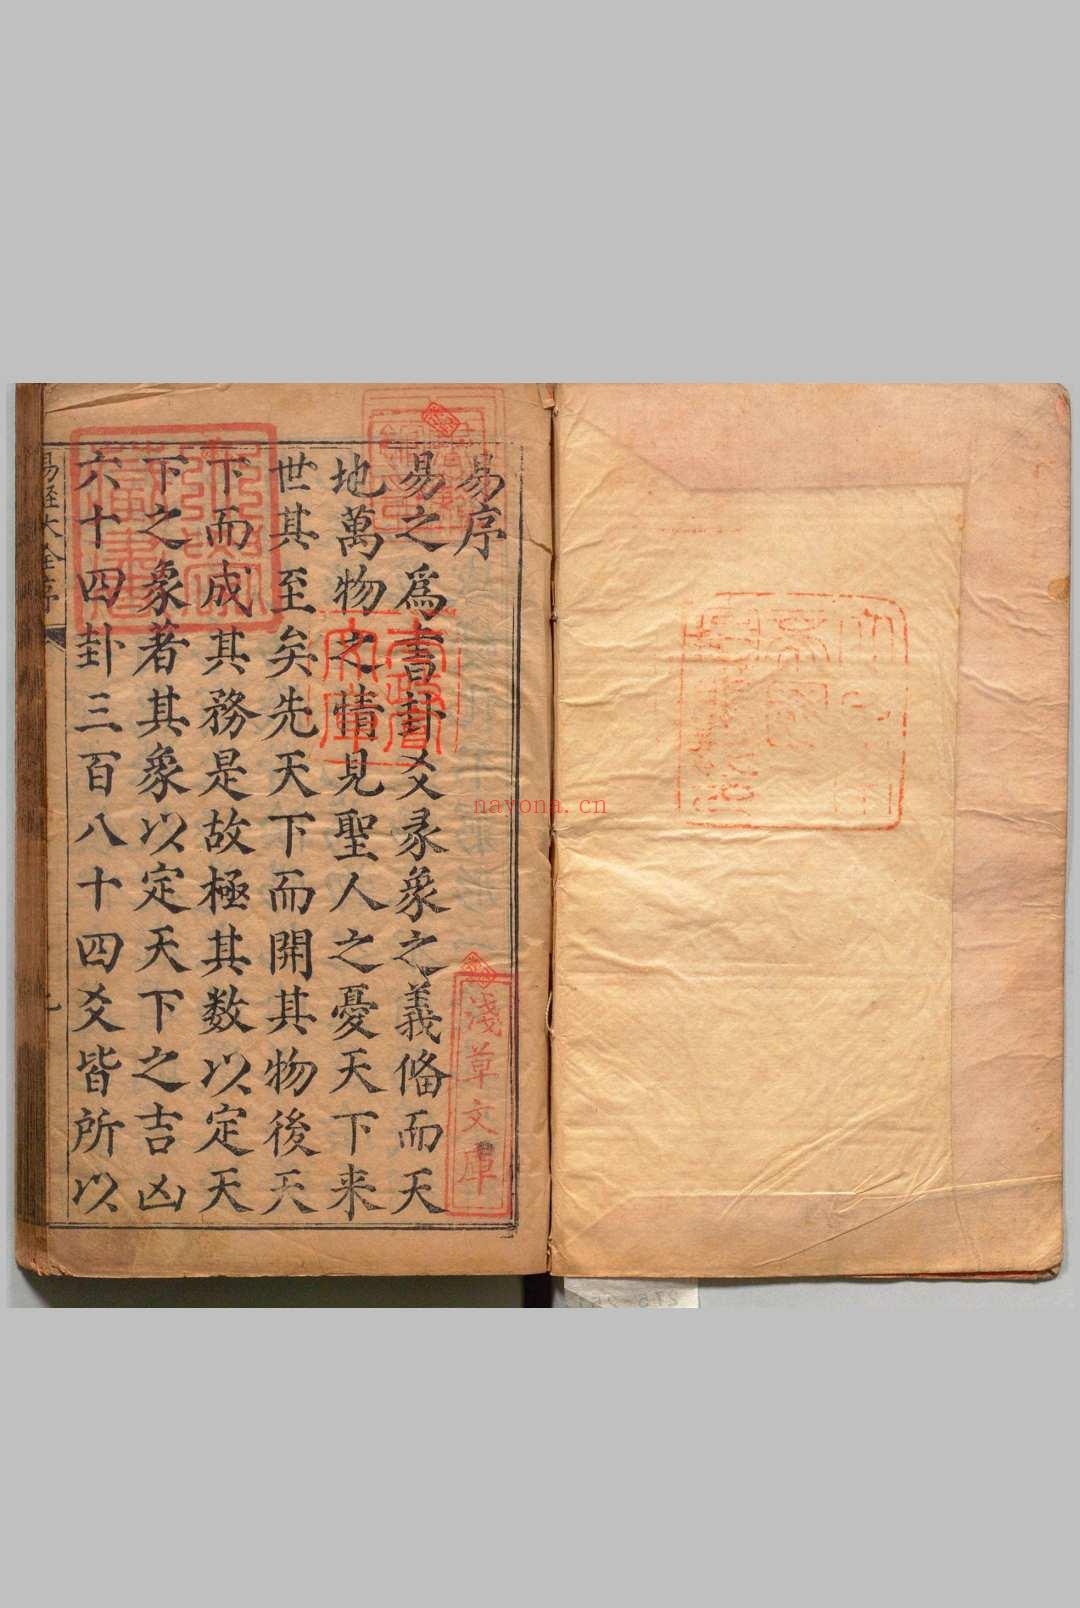 易序
易之爲書卦爻彖象之義俻而天
地萬物之情見聖人之憂天下来
世其至矣先天下而開其物後天
下而成其務是故極其数以定天
下之象著其象以定天下之吉凶
六十四卦三百八十四爻皆所以
易經大全序
淺草文庫
nayona.cn